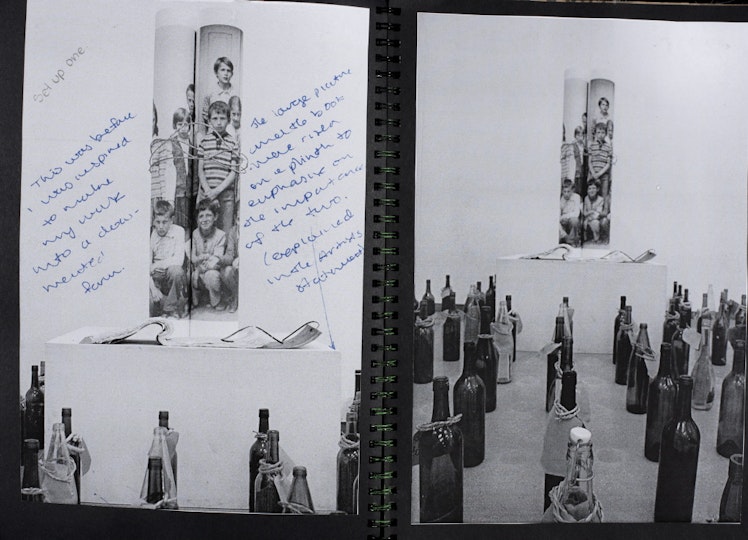 Set up one
This was before
I was inspired
to make
my work
into a docu-
mented
form.
The large picture
and the book
were risen
on a plinth to
emphasize on
the importance
of the two.
(explained
in the Artists
statement)